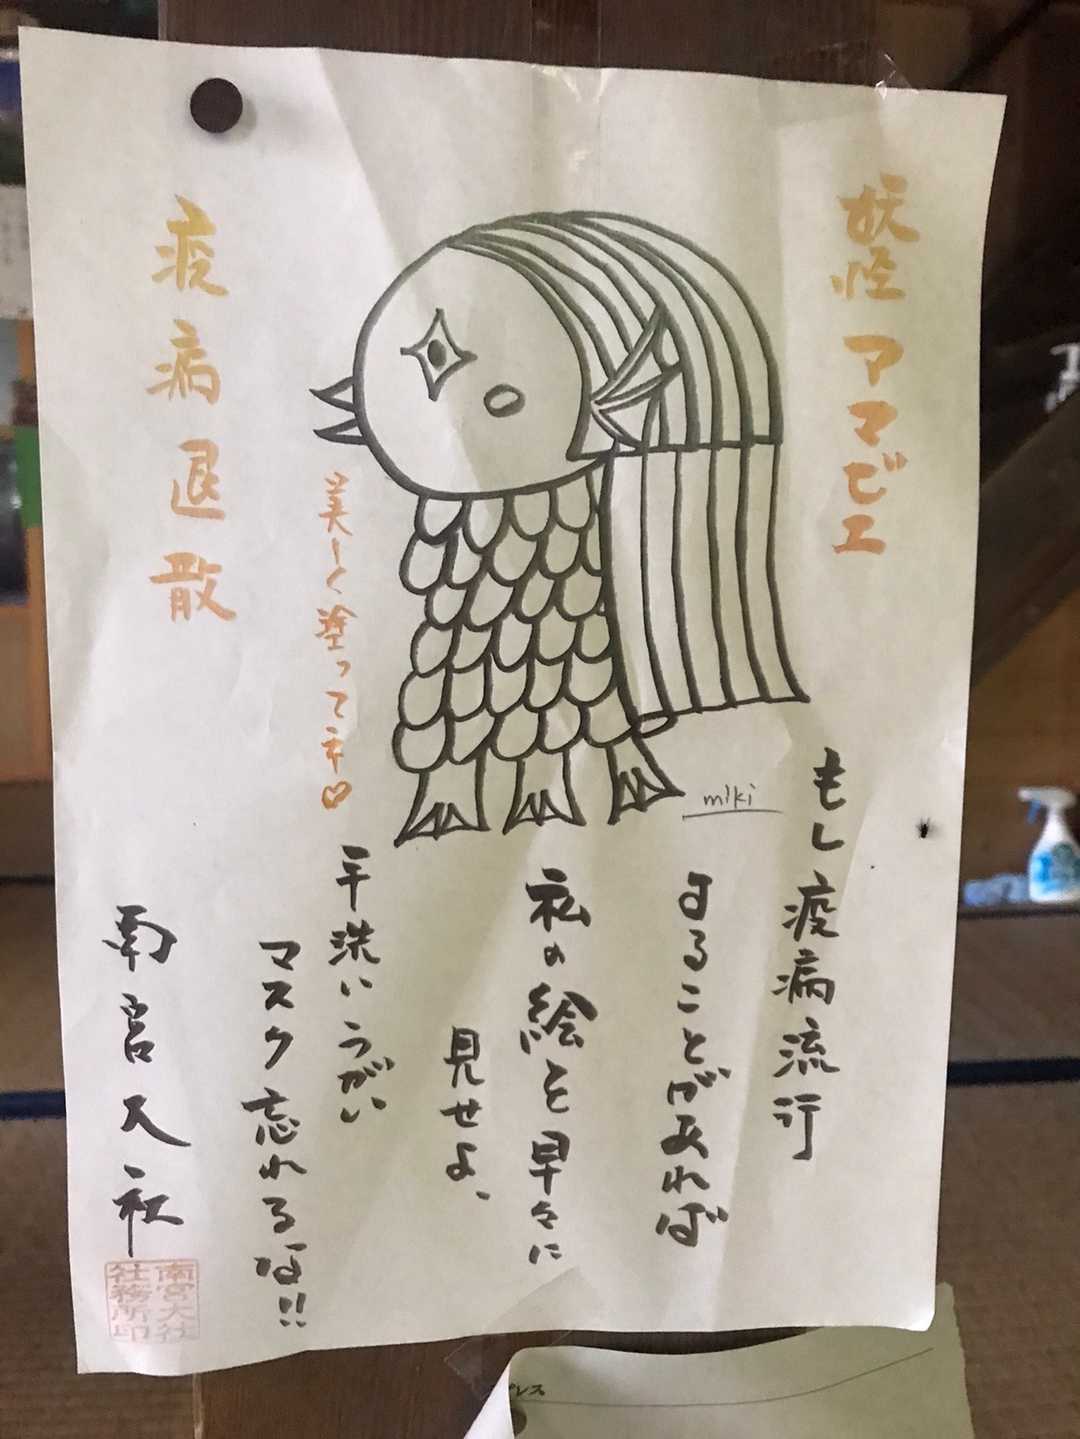 妖怪アマビエ
もし疫病流行
することがあれば
私の絵を早々に
見せよ、
手洗いうがい
マスク忘れるな!!
美しく塗ってネ♡
疫病退散
南宮大社
南宮大社
社務所印
miki
プレス